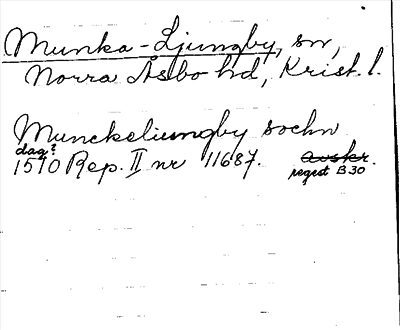 Munka-Ljungby, sn,
Norra Åsbo hd, Krist. l.
Munckeliungby sochn
dag?
1570 Rep. II nr 11687. avskr.
regest B 30